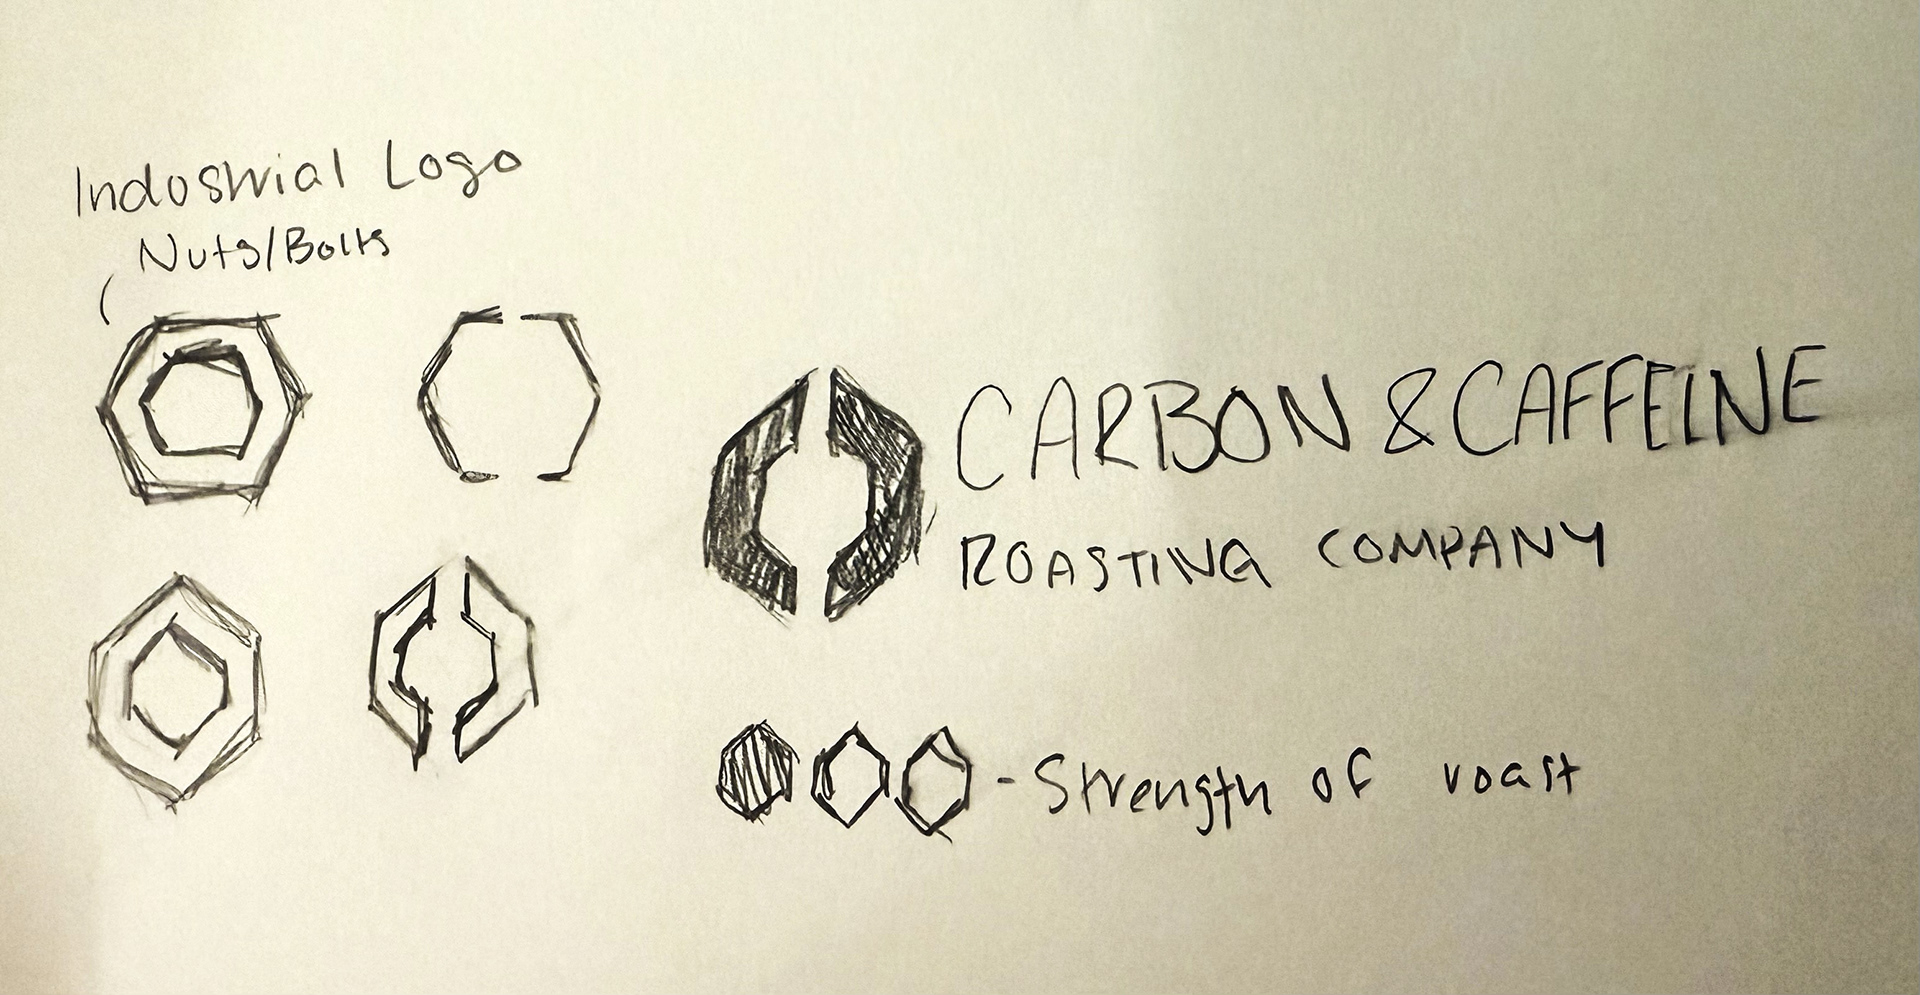 Industrial Logo
Nuts/Bolts
CARBON & CAFFEINE
ROASTING COMPANY
- Strength of roast